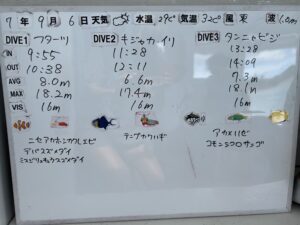 7年9月6日 天気 水温29℃ 気温32℃ 風東 波1.0m
DIVE1 フタツリ DIVE2 キジャカイリ DIVE3 タンニャヒジ
IN 9:55 11:28 13:28
OUT 10:38 12:11 14:09
AVG 8.0m 6.6m 7.3m
MAX 18.2m 17.4m 18.1m
VIS 16m 16m 16m
ニセアカホシカクレエビ テングカワハギ アカメハゼ
デバスズメダイ コモンシコロサンゴ
ミスジリュウキュウスズメダイ